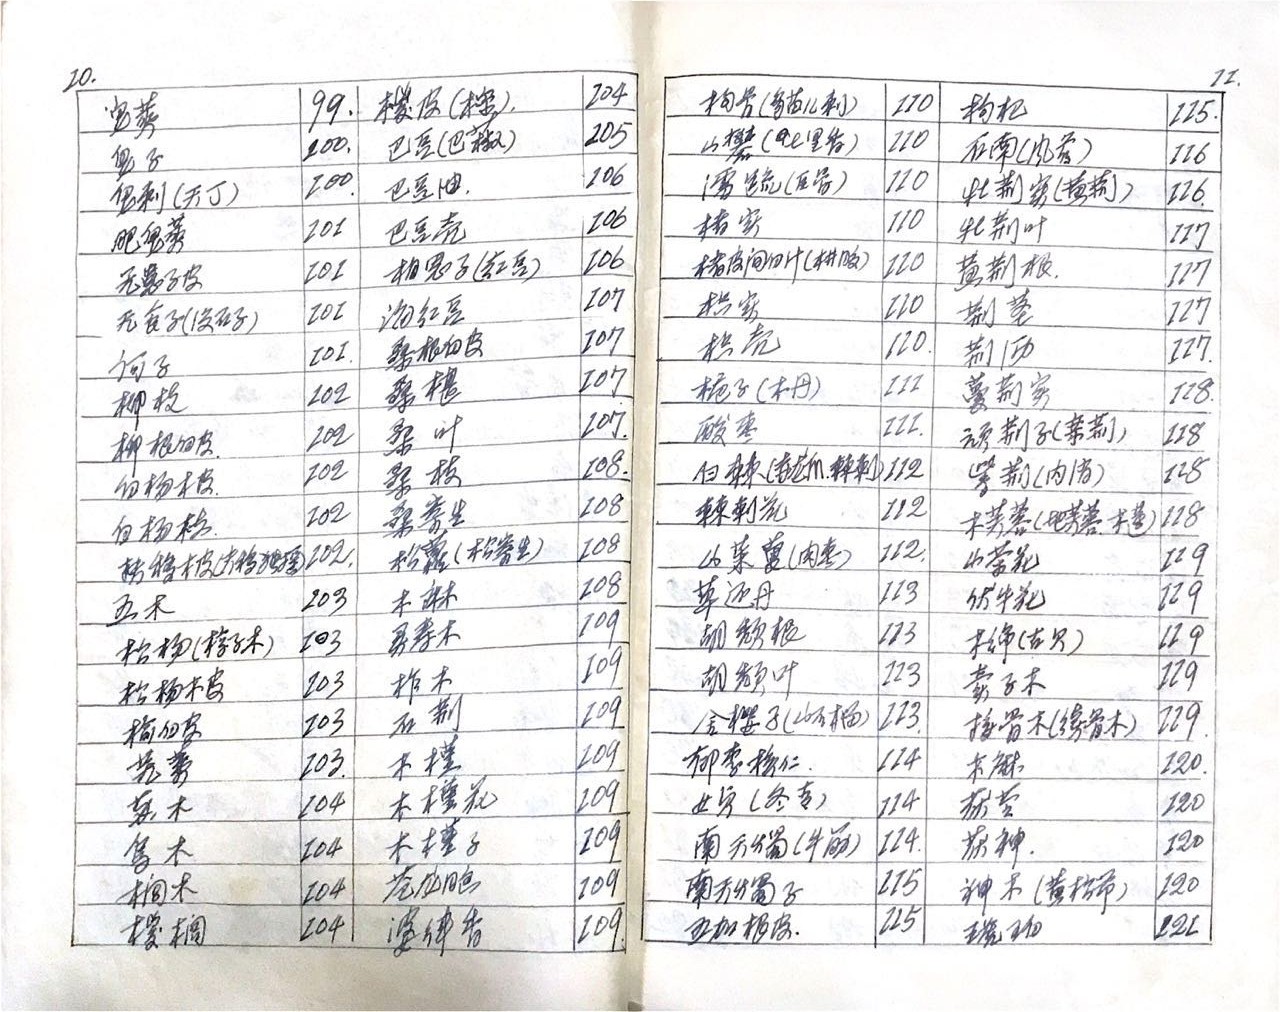 10.
皂荚 99. 棕皮(棕) 104
皂子 100. 巴豆(巴菽) 105
皂刺(天丁) 100. 巴豆油. 106
肥皂荚 101 巴豆壳 106
无患子皮 101 相思子(红豆) 106
无食子(没石子) 101 海红豆 107
诃子 101. 桑根白皮 107
柳枝 102 桑椹 107
柳根白皮 102 桑叶 107.
白杨木皮. 102 桑枝 108.
白杨枝 102 桑寄生 108
扶移木皮 102. 松萝(松寄生) 108
五木 103 木麻 108
松杨(椋子木) 103 寿木 109
松杨木皮 103 柞木 109
榆白皮 103 石荆 109
芜荑 103. 木槿 109
苏木 104 木槿花 109
乌木 104 木槿子 109
桐木 104 109
棕榈 104 婆律香 109.
11.
枸骨(刺) 110 枸杞 115.
山矾(七里香) 110 石南(风药) 116
溲疏(巨骨) 110 牡荆实(黄荆) 116.
楮实 110 牡荆叶 117
楮皮间白汁 110 黄荆根. 117
枳实 110 荆茎 117
枳壳 110. 荆沥 117.
栀子(木丹) 111 蔓荆实 118.
酸枣 111. 荆子 118
白棘 112 紫荆(内消) 118
棘刺花 112 木芙蓉(地芙蓉.木莲) 118
山茱萸(肉枣) 112. 山茶花 119
草还丹 113 伏牛花 119
胡颓根 113 木绵(古贝) 119
胡颓叶 113 子木 119
金樱子(山石榴) 113. 接骨木(续骨木) 119.
郁李核仁. 114 木 120.
女贞(冬青) 114 茯苓 120
南天烛(牛筋) 114. 茯神. 120
南天烛子 115 神木(黄松节) 120
五加根皮. 115 琥珀 121